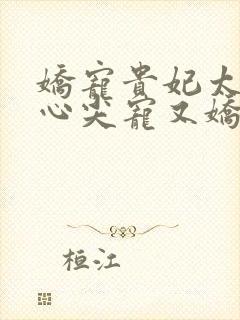 嬌寵貴妃太
心尖寵又嬌
桓江